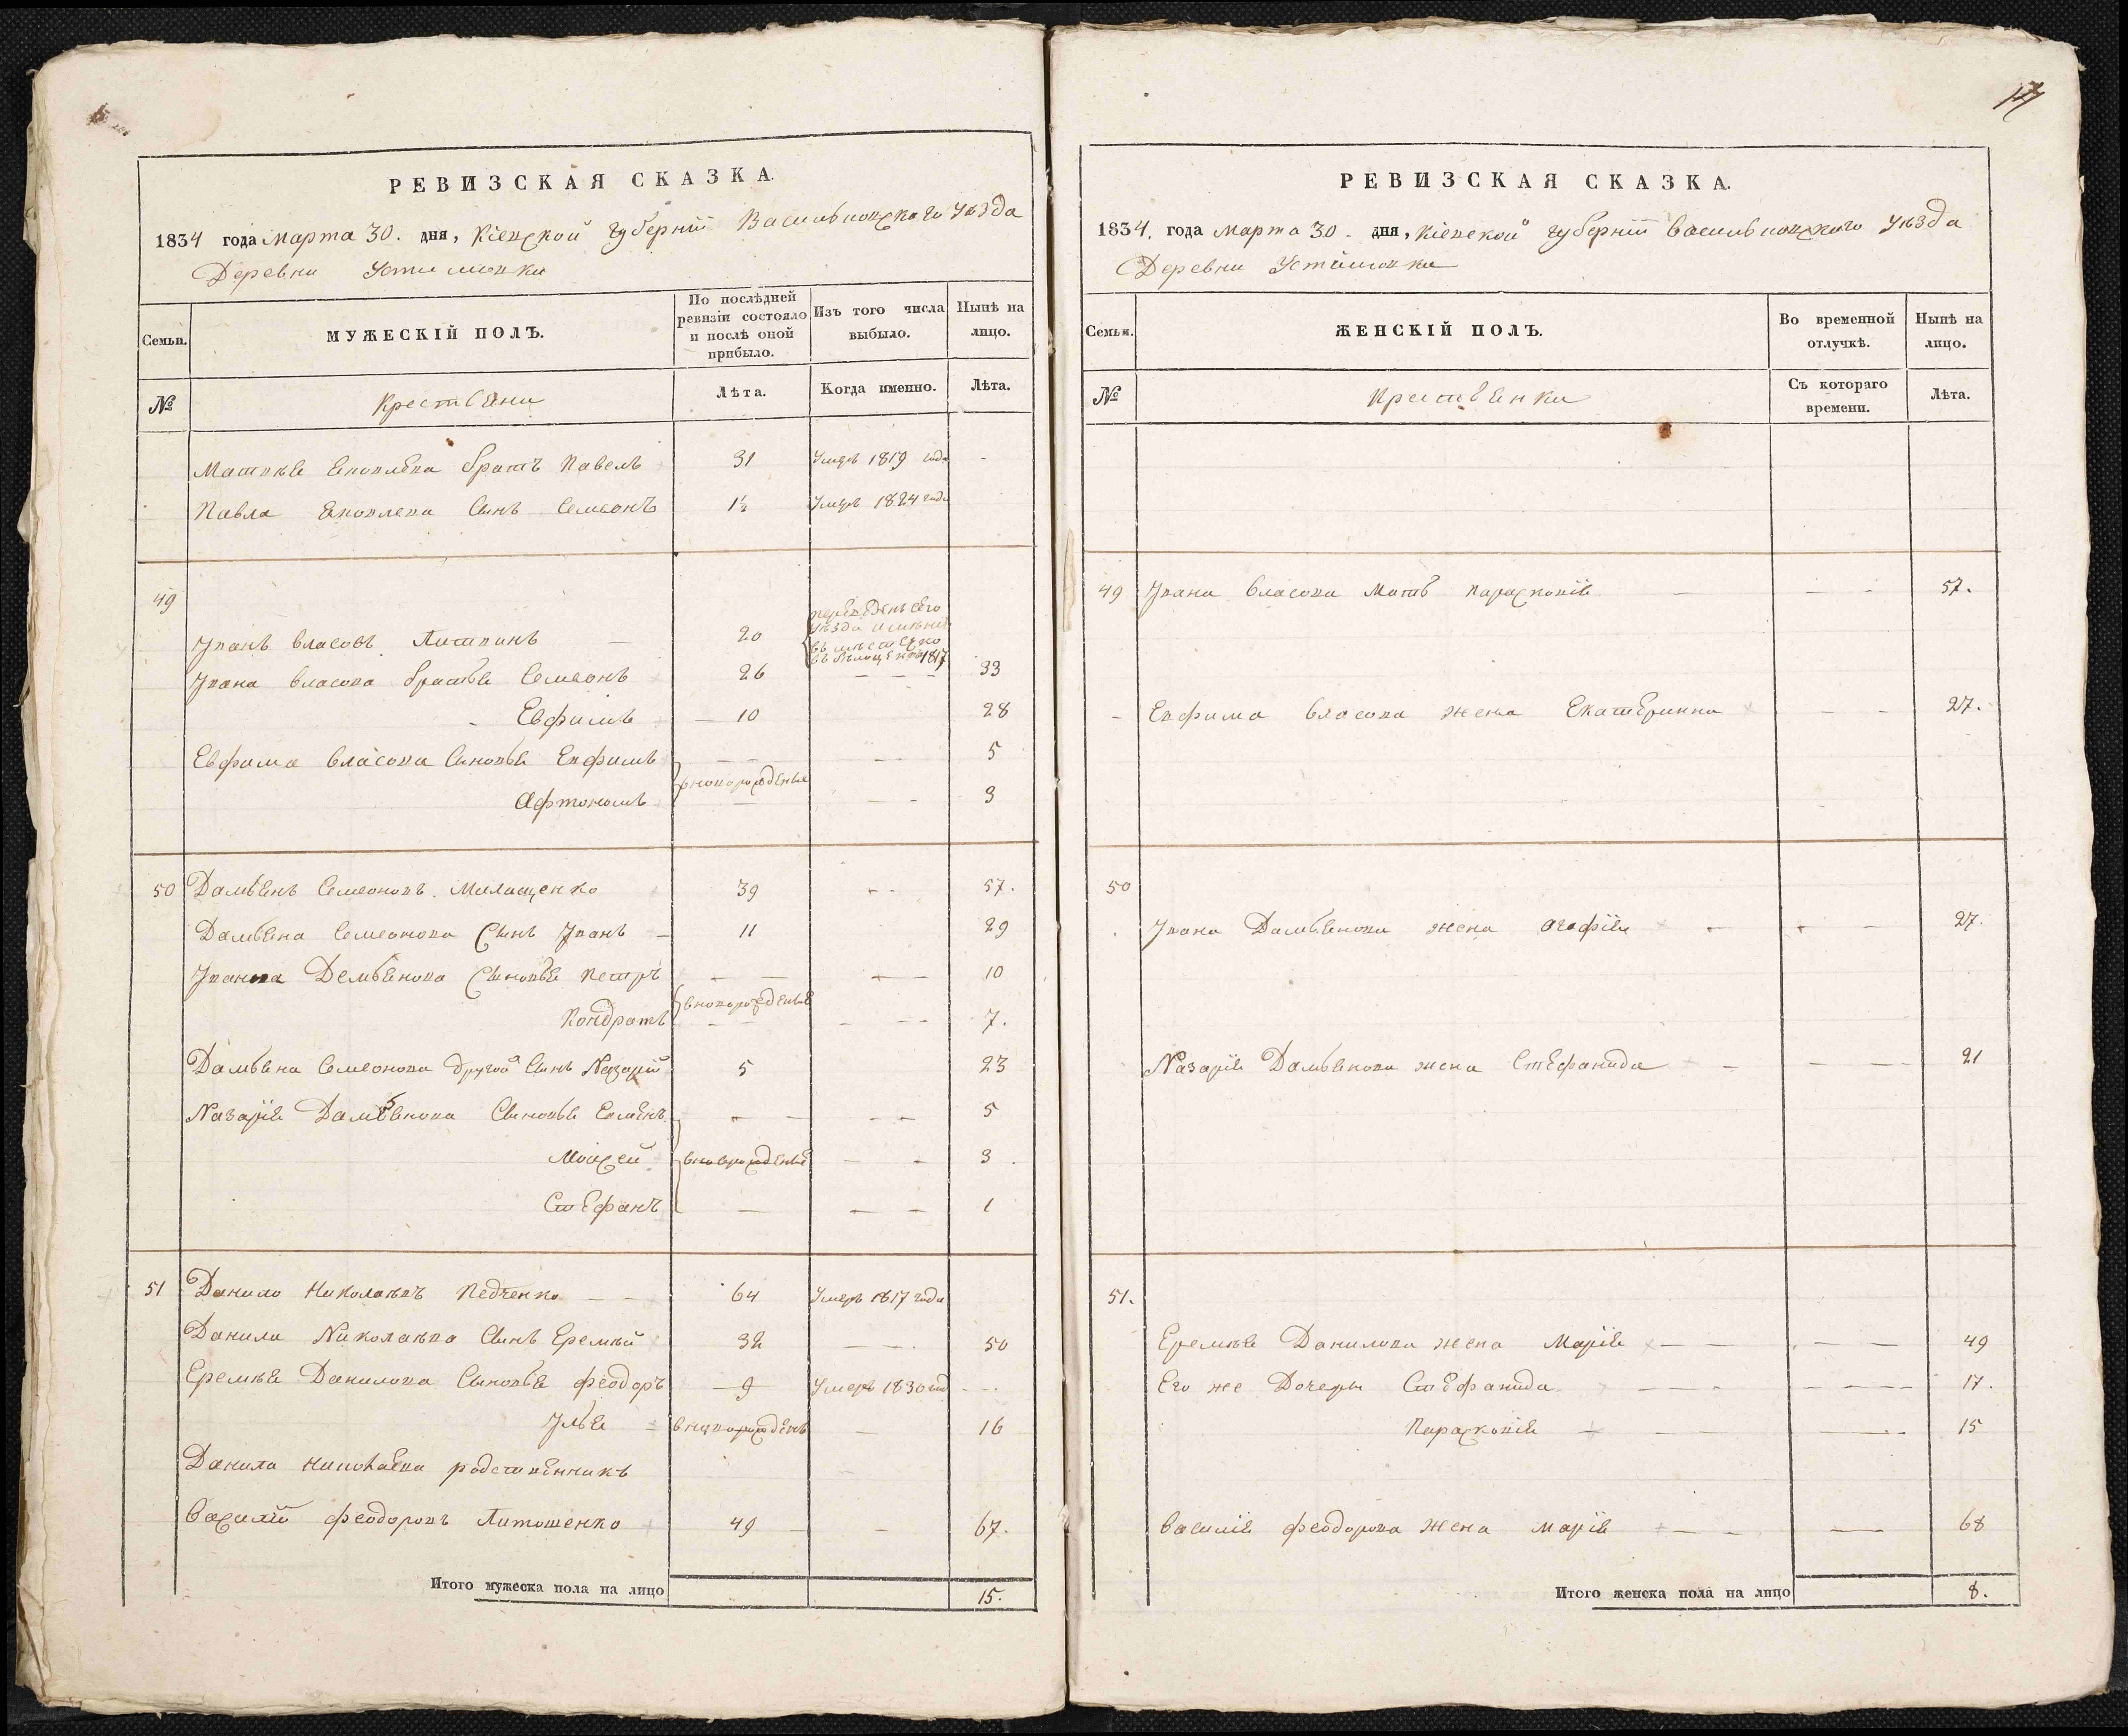 РЕВИЗСКАЯ СКАЗКА.
1834 года Марта 30. дня, Кіевской губерніи Васильковскаго Уѣзда
Деревни Устимовки
Семьи. МУЖЕСКІЙ ПОЛЪ. По послѣдней ревизіи состояло и послѣ оной прибыло. Изъ того числа выбыло. Нынѣ на лицо.
№ Крестьяни Лѣта. Когда именно. Лѣта.
Матвѣя Яковлева братъ Павелъ 31 Умеръ 1819 года -
Павла Яковлева Сынъ Семионъ 1½ Умеръ 1824 года
49
Иванъ Власовъ Литвинъ — 20 переведенъ сего уѣзда имѣние въ мѣстечко 1817
Ивана Власова братья Семионъ 26 — — — 33
Евфимъ — 10 28
Евфима Власова Сыновья Евфимъ — — — — 5
вноворожденые
Афтономъ — — — 3
50 Дамьянъ Семионовъ Милащенко 39 - - 57.
Дамьяна Семионова Сынъ Иванъ — 11 29
Ивана Демьянова Сыновья Петръ — — — — 10
вноворожденые
Кондратъ — — — — — 7.
Дамьяна Семионова другой Сынъ Назарій 5 23
Назарія Дамьянова Сыновья Евменъ — — — — 5
Моисей вноврожденые — — 3.
Стефанъ — — — 1
51 Данило Николаевъ Педченко — — 64 Умеръ 1817 года
Данила Николаева Сынъ Еремѣй 32 — — . 50
Еремѣя Данилова Сыновья Феодоръ — 9 Умеръ 1830 год - - -
Илья вноворожденъ — 16
Данила Николаева родственникъ
Василій Феодоровъ Литошенко 49 — 67.
Итого мужеска пола на лицо 15.
17
РЕВИЗСКАЯ СКАЗКА.
1834. года Марта 30 - дня, Кіевской губерніи Васильковскаго Уѣзда
Деревни Устимовки
Семьи. ЖЕНСКІЙ ПОЛЪ. Во временной отлучкѣ. Нынѣ на лицо.
№ Крестьянки Съ котораго времени. Лѣта.
49 Ивана Власова Мать Парасковія — — - - 57.
- Евфима Власова жена Екатеринна — — — 27.
50
Ивана Дамьянова жена Агафія - - - — 27.
Назарія Дамьянова жена Стефанида — — — — 21
51.
Еремѣя Данилова жена Марія — — . — — 49
Его же Дочеры Стефанида — — - — — — 17.
Парасковія — — — —— 15
Василія Феодорова жена Марія — — — 68
Итого женска пола на лицо 8.